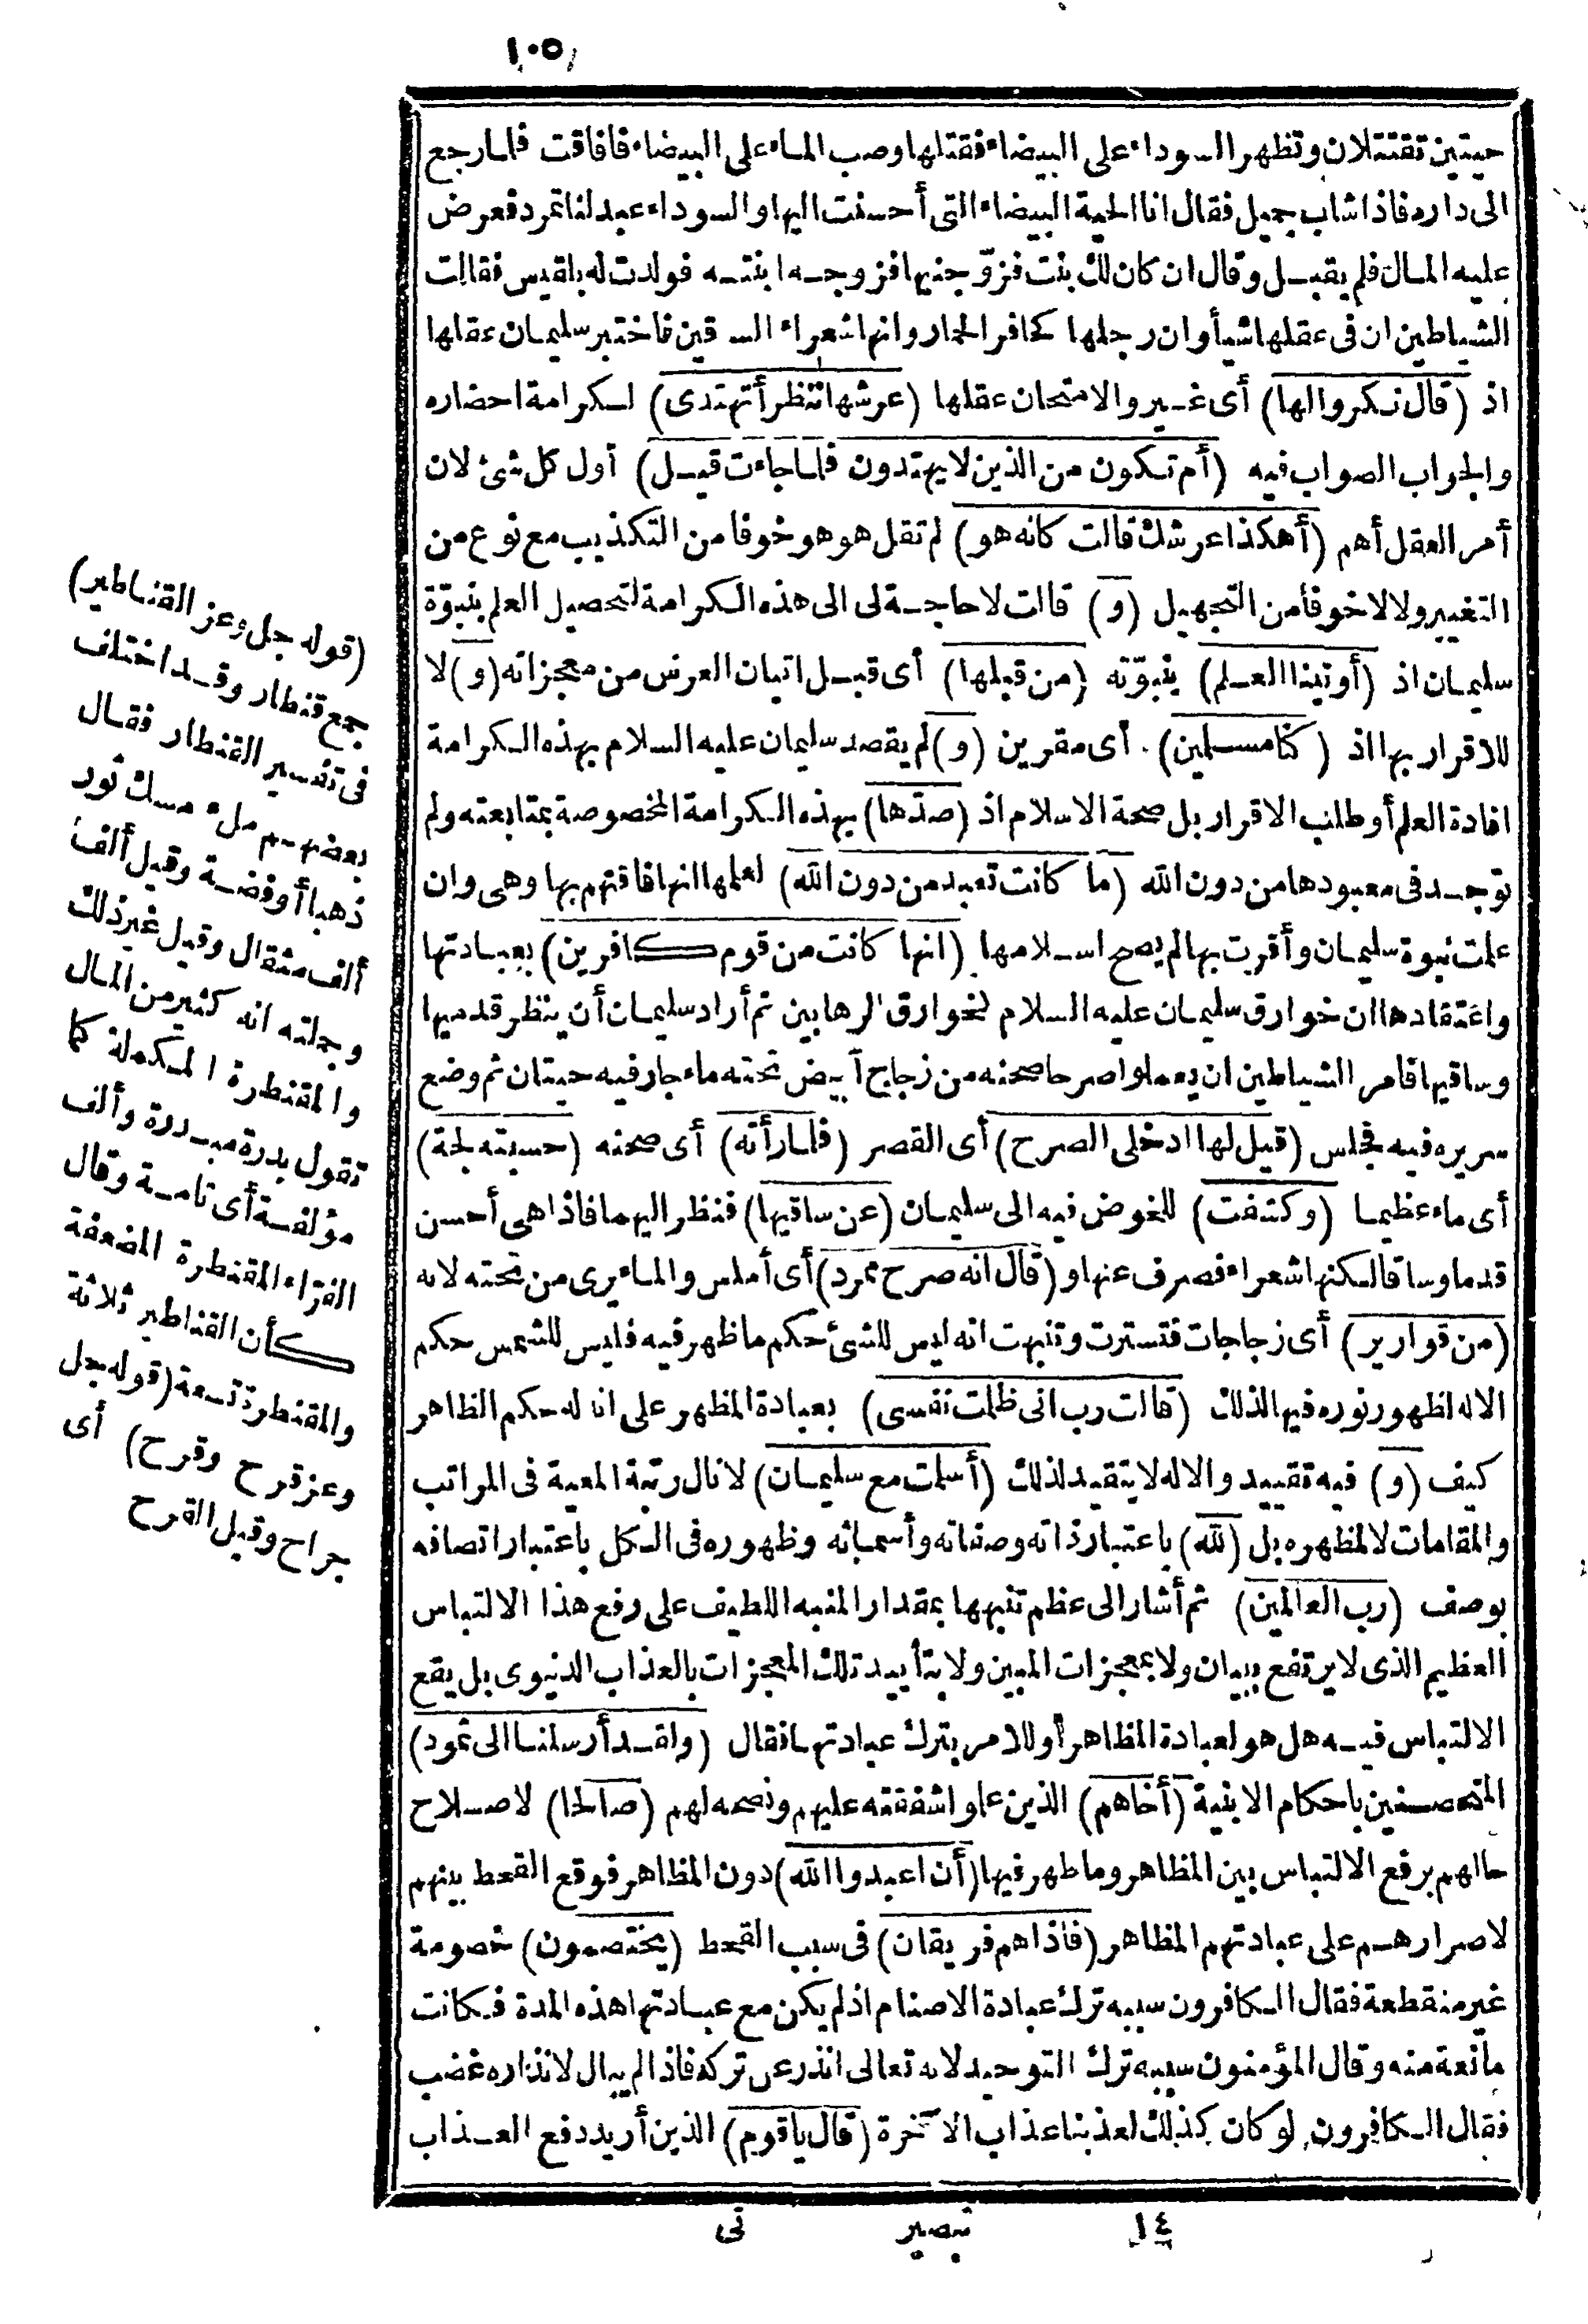 ١٠٥
حيتين تقتتلان وتظهر السوداء على البيضاء فقتلها وصب الماء على البيضاء فافاقت فلما رجع
الى داره فاذا شاب جميل فقال انا الحية البيضاء التى أحسنت اليها والسوداء عبد لنا تمرد فعرض
عليه المال فلم يقبل وقال ان كان لك بنت فزوّجنيها فزوجه ابنته فولدت له بلقيس فقالت
الشياطين ان فى عقلها شيأ وان رجلها كحافر الحمار وانها شعراء الساقين فاختبر سليمان عقلها
اذ (قال نكروا لها) أى غيروا لامتحان عقلها (عرشها ننظر أتهتدى) لكرامة احضاره
والجواب الصواب فيه (أم تكون من الذين لا يهتدون فلما جاءت قيل) أول كل شئ لان
أمر العقل أهم (أهكذا عرشك قالت كانه هو) لم تقل هو هو خوفا من التكذيب مع نوع من
التغيير ولا لا خوفا من التجهيل (و) قالت لا حاجة لى الى هذه الكرامة لتحصيل العلم بنبوّة
سليمان اذ (أوتينا العلم) بنبوّته (من قبلها) أى قبل اتيان العرش من معجزاته (و) لا
للاقرار بها اذ (كنا مسلمين) أى مقرين (و) لم يقصد سليمان عليه السلام بهذه الكرامة
افادة العلم أو طلب الاقرار بل صحة الاسلام اذ (صدّها) بهذه الكرامة المخصوصة بمتابعته ولم
توجد فى معبودها من دون الله (ما كانت تعبد من دون الله) لعلمها انها فاقتهم بها وهى وان
علمت نبوة سليمان وأقرت بها لم يصح اسلامها (انها كانت من قوم كافرين) بعبادتها
واعتقادها ان خوارق سليمان عليه السلام لخوارق الرهابين ثم أراد سليمان أن ينظر قدميها
وساقيها فامر الشياطين ان يعملوا صرحا صحنه من زجاج أبيض تحته ماء جار فيه حيتان ثم وضع
سريره فيه فجلس (قيل لها ادخلى الصرح) أى القصر (فلما رأته) أى صحنه (حسبته لجة)
أى ماء عظيما (وكشفت) للخوض فيه الى سليمان (عن ساقيها) فنظر اليهما فاذا هى أحسن
قدما وساقا لكنها شعراء فصرف عنها و (قال انه صرح ممرد) أى أملس والماء يرى من تحته لانه
(من قوارير) أى زجاجات فتسترت وتنبهت انه ليس للشئ حكم ما ظهر فيه فليس للشمس حكم
الاله لظهور نوره فيها لذلك (قالت رب انى ظلمت نفسى) بعبادة المظهر على انا له حكم الظاهر
كيف (و) فيه تقييد والاله لا يتقيد لذلك (أسلمت مع سليمان) لانال رتبة المعية فى المراتب
والمقامات لا لمظهره بل (لله) باعتبار ذاته وصفاته وأسمائه وظهوره فى الكل باعتبار اتصافه
بوصف (رب العالمين) ثم أشار الى عظم تنبهها بمقدار المنبه اللطيف على رفع هذا الالتباس
العظيم الذى لا يرتفع ببيان ولا بمعجزات المبين ولا بتأييد تلك المعجزات بالعذاب الدنيوى بل يقع
الالتباس فيه هل هو لعبادة المظاهر أو للامر بترك عبادتها فقال (ولقد أرسلنا الى ثمود)
المتصفين باحكام الابنية (أخاهم) الذين علموا شفقته عليهم ونصحه لهم (صالحا) لاصلاح
حالهم برفع الالتباس بين المظاهر وما ظهر فيها (أن اعبدوا الله) دون المظاهر فوقع القحط بينهم
لاصرارهم على عبادتهم المظاهر (فاذا هم فريقان) فى سبب القحط (يختصمون) خصومة
غير منقطعة فقال الكافرون سببه ترك عبادة الاصنام اذ لم يكن مع عبادتها هذه المدة فكانت
مانعة منه وقال المؤمنون سببه ترك التوحيد لانه تعالى انذر عن تركه فاذا لم يبال لانذاره غضب
فقال الكافرون لو كان كذلك لعذبنا عذاب الآخرة (قال ياقوم) الذين أريد دفع العذاب
١٤ تبصير نى
(قوله جل وعز القناطير)
جمع قنطار وقد اختلف
فى تفسير القنطار فقال
بعضهم ملء مسك ثور
ذهبا أو فضة وقيل ألف
ألف مثقال وقيل غير ذلك
وجملته انه كثير من المال
والمقنطرة المكملة كما
تقول بدرة مبدرة وألف
مؤلفة أى تامة وقال
الفرّاء المقنطرة المضعفة
كأن القناطير ثلاثة
والمقنطرة تسعة (قوله جل
وعز قرح وقرح) أى
جراح وقيل القرح